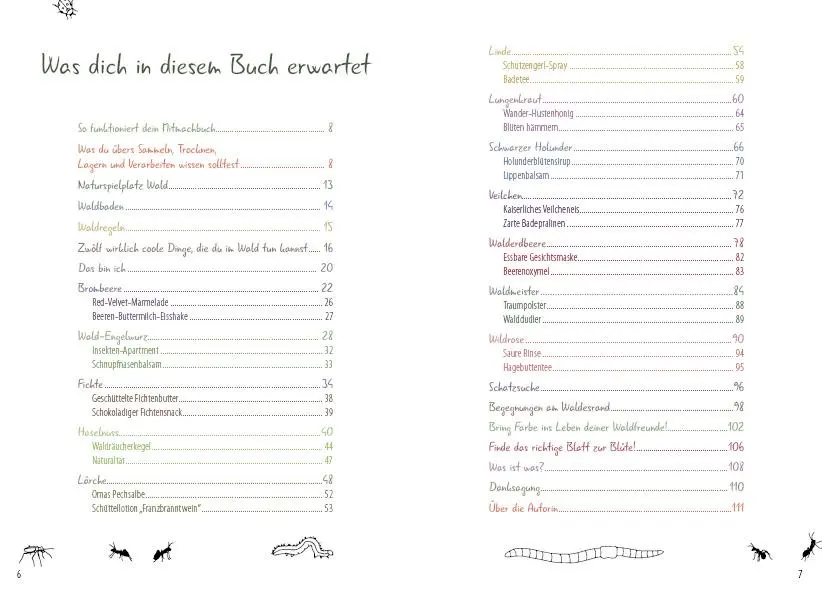 Was dich in diesem Buch erwartet
So funktioniert dein Mitmachbuch 8
Was du übers Sammeln, Trocknen,
Lagern und Verarbeiten wissen solltest 8
Naturspielplatz Wald 13
Waldbaden 14
Waldregeln 15
Zwölf wirklich coole Dinge, die du im Wald tun kannst 16
Das bin ich 20
Brombeere 22
Red-Velvet-Marmelade 26
Beeren-Buttermilch-Eisshake 27
Wald-Engelwurz 28
Insekten-Apartment 32
Schnupfnasenbalsam 33
Fichte 34
Geschüttelte Fichtenbutter 38
Schokoladiger Fichtensnack 39
Haselnuss 40
Waldräucherkegel 44
Naturaltar 47
Lärche 48
Omas Pechsalbe 52
Schüttellotion „Franzbranntwein“ 53
6
Linde 54
Schutzengerl-Spray 58
Badetee 59
Lungenkraut 60
Wander-Hustenhonig 64
Blüten hämmern 65
Schwarzer Holunder 66
Holunderblütensirup 70
Lippenbalsam 71
Veilchen 72
Kaiserliches Veilcheneis 76
Zarte Badepralinen 77
Walderdbeere 78
Essbare Gesichtsmaske 82
Beerenoxymel 83
Waldmeister 84
Traumpolster 88
Walddudler 89
Wildrose 90
Saure Rinse 94
Hagebuttentee 95
Schatzsuche 96
Begegnungen am Waldesrand 98
Bring Farbe ins Leben deiner Waldfreunde! 102
Finde das richtige Blatt zur Blüte! 106
Was ist was? 108
Danksagung 110
Über die Autorin 111
7